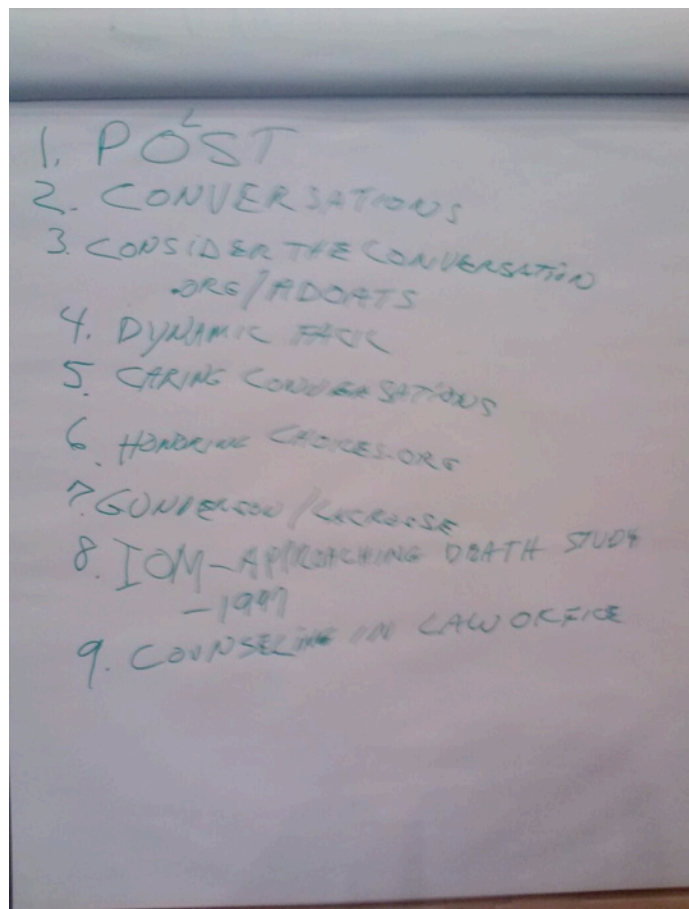 1. POLST
2. CONVERSATIONS
3. CONSIDER THE CONVERSATION
.ORG/
4. DYNAMIC
5. CARING CONVERSATIONS
6. HONORING CHOICES.ORG
7. GUNDERSON/LACROSSE
8. IOM-APPROACHING DEATH STUDY
-1997
9. COUNSELING IN LAW OFFICE